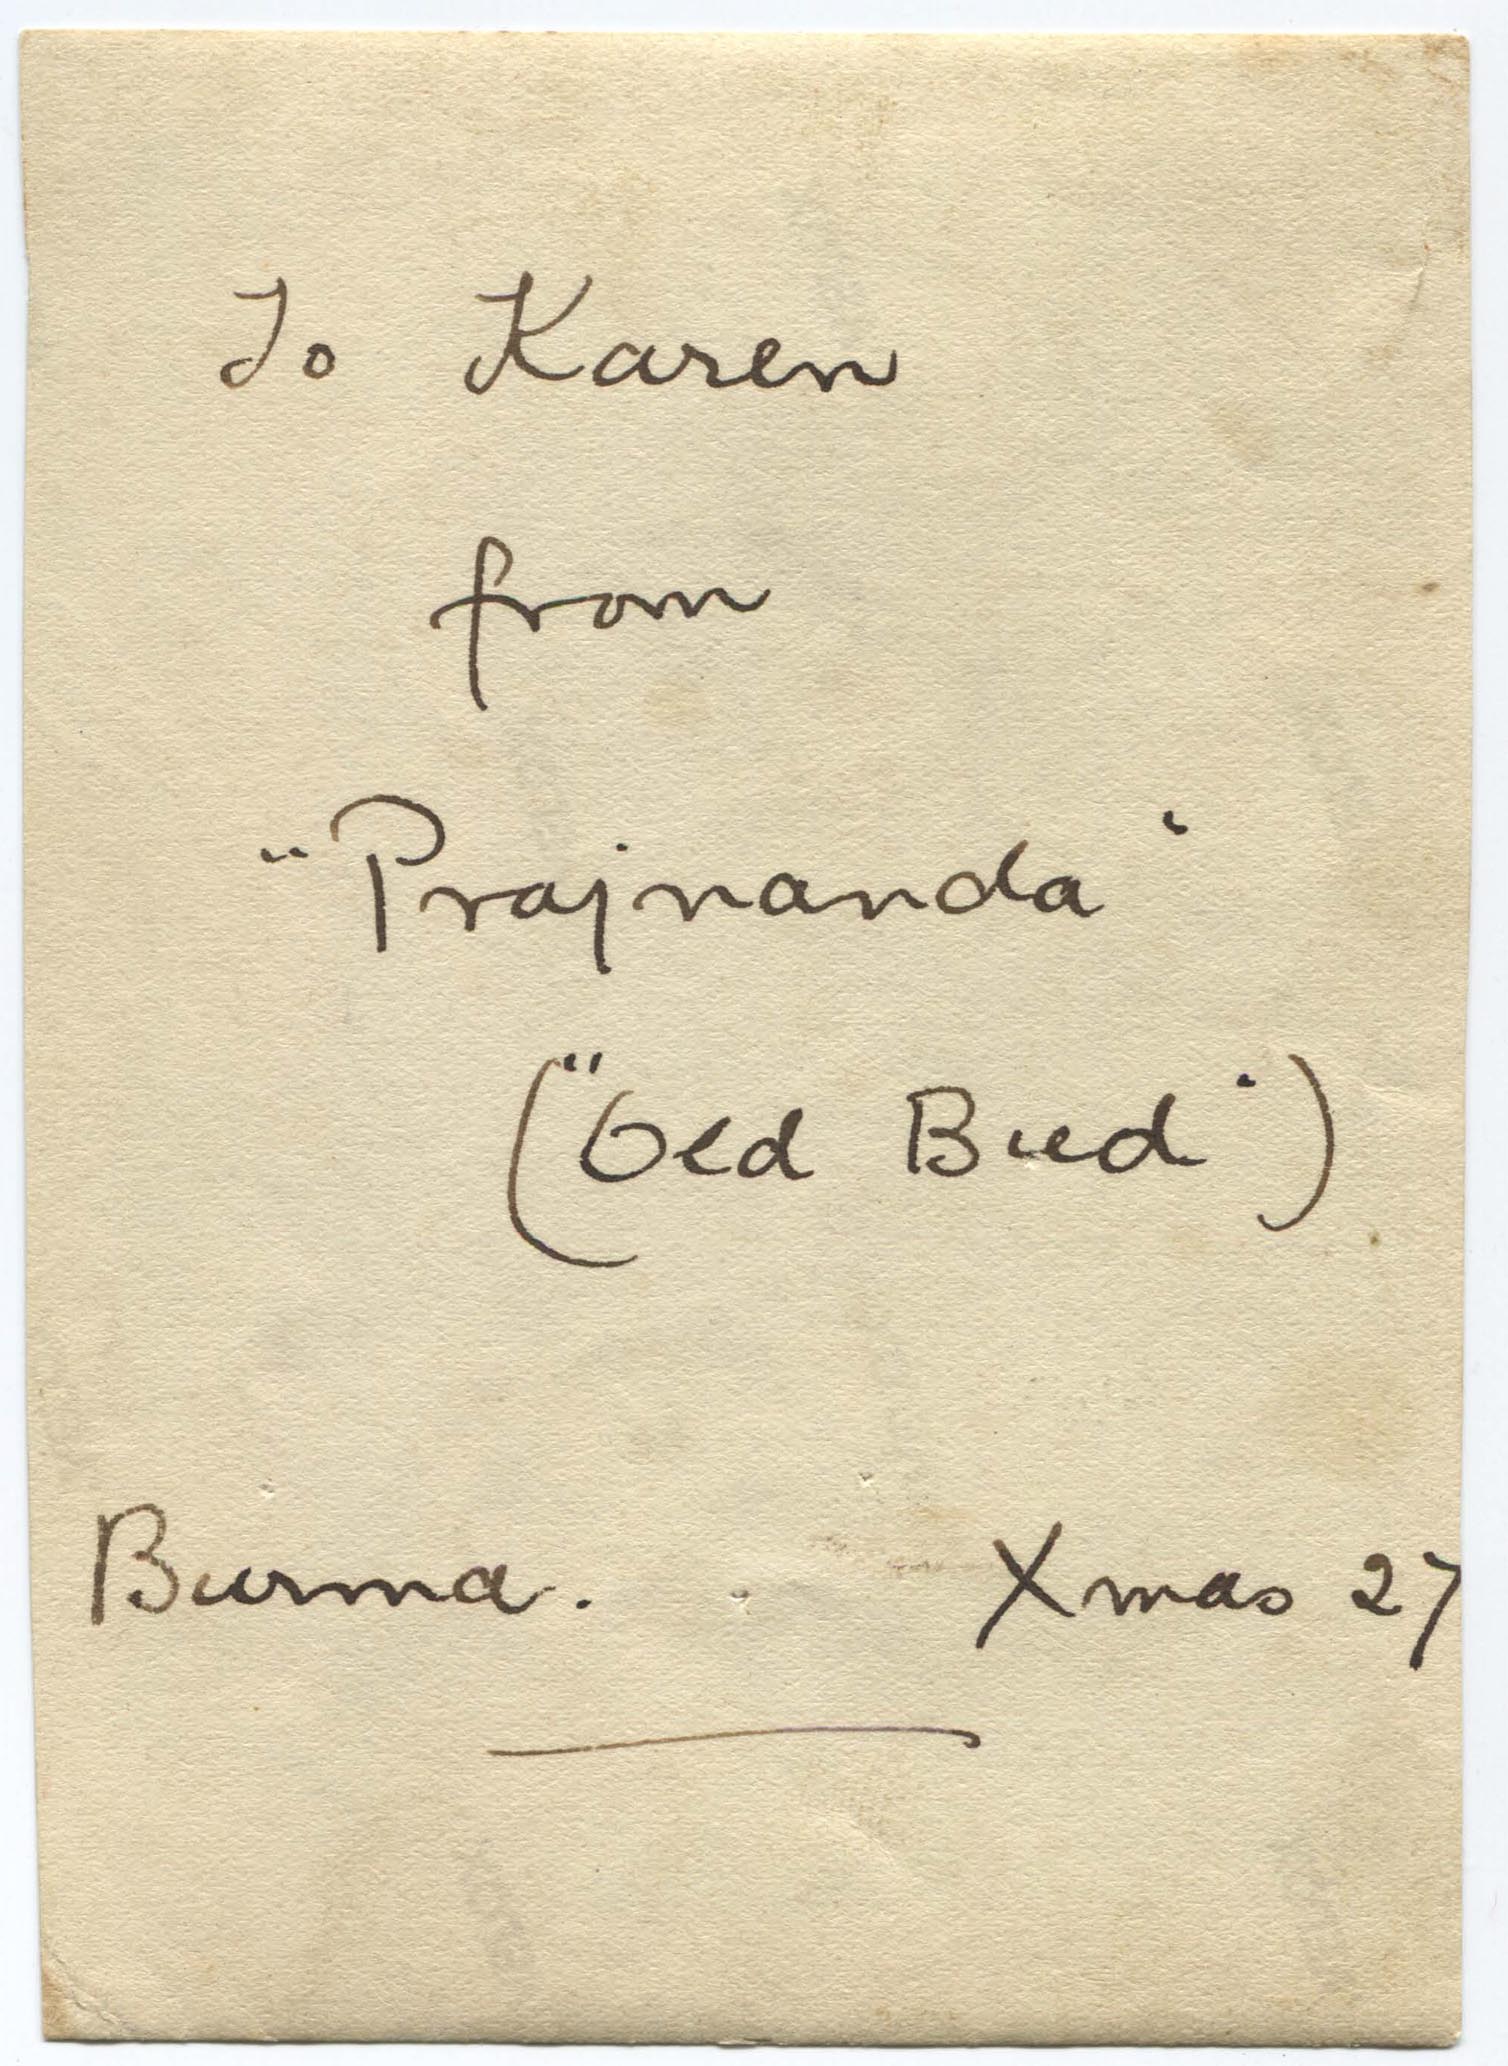 To Karen
from
"Prajnanda"
("Old Bird")
Burma. Xmas 27